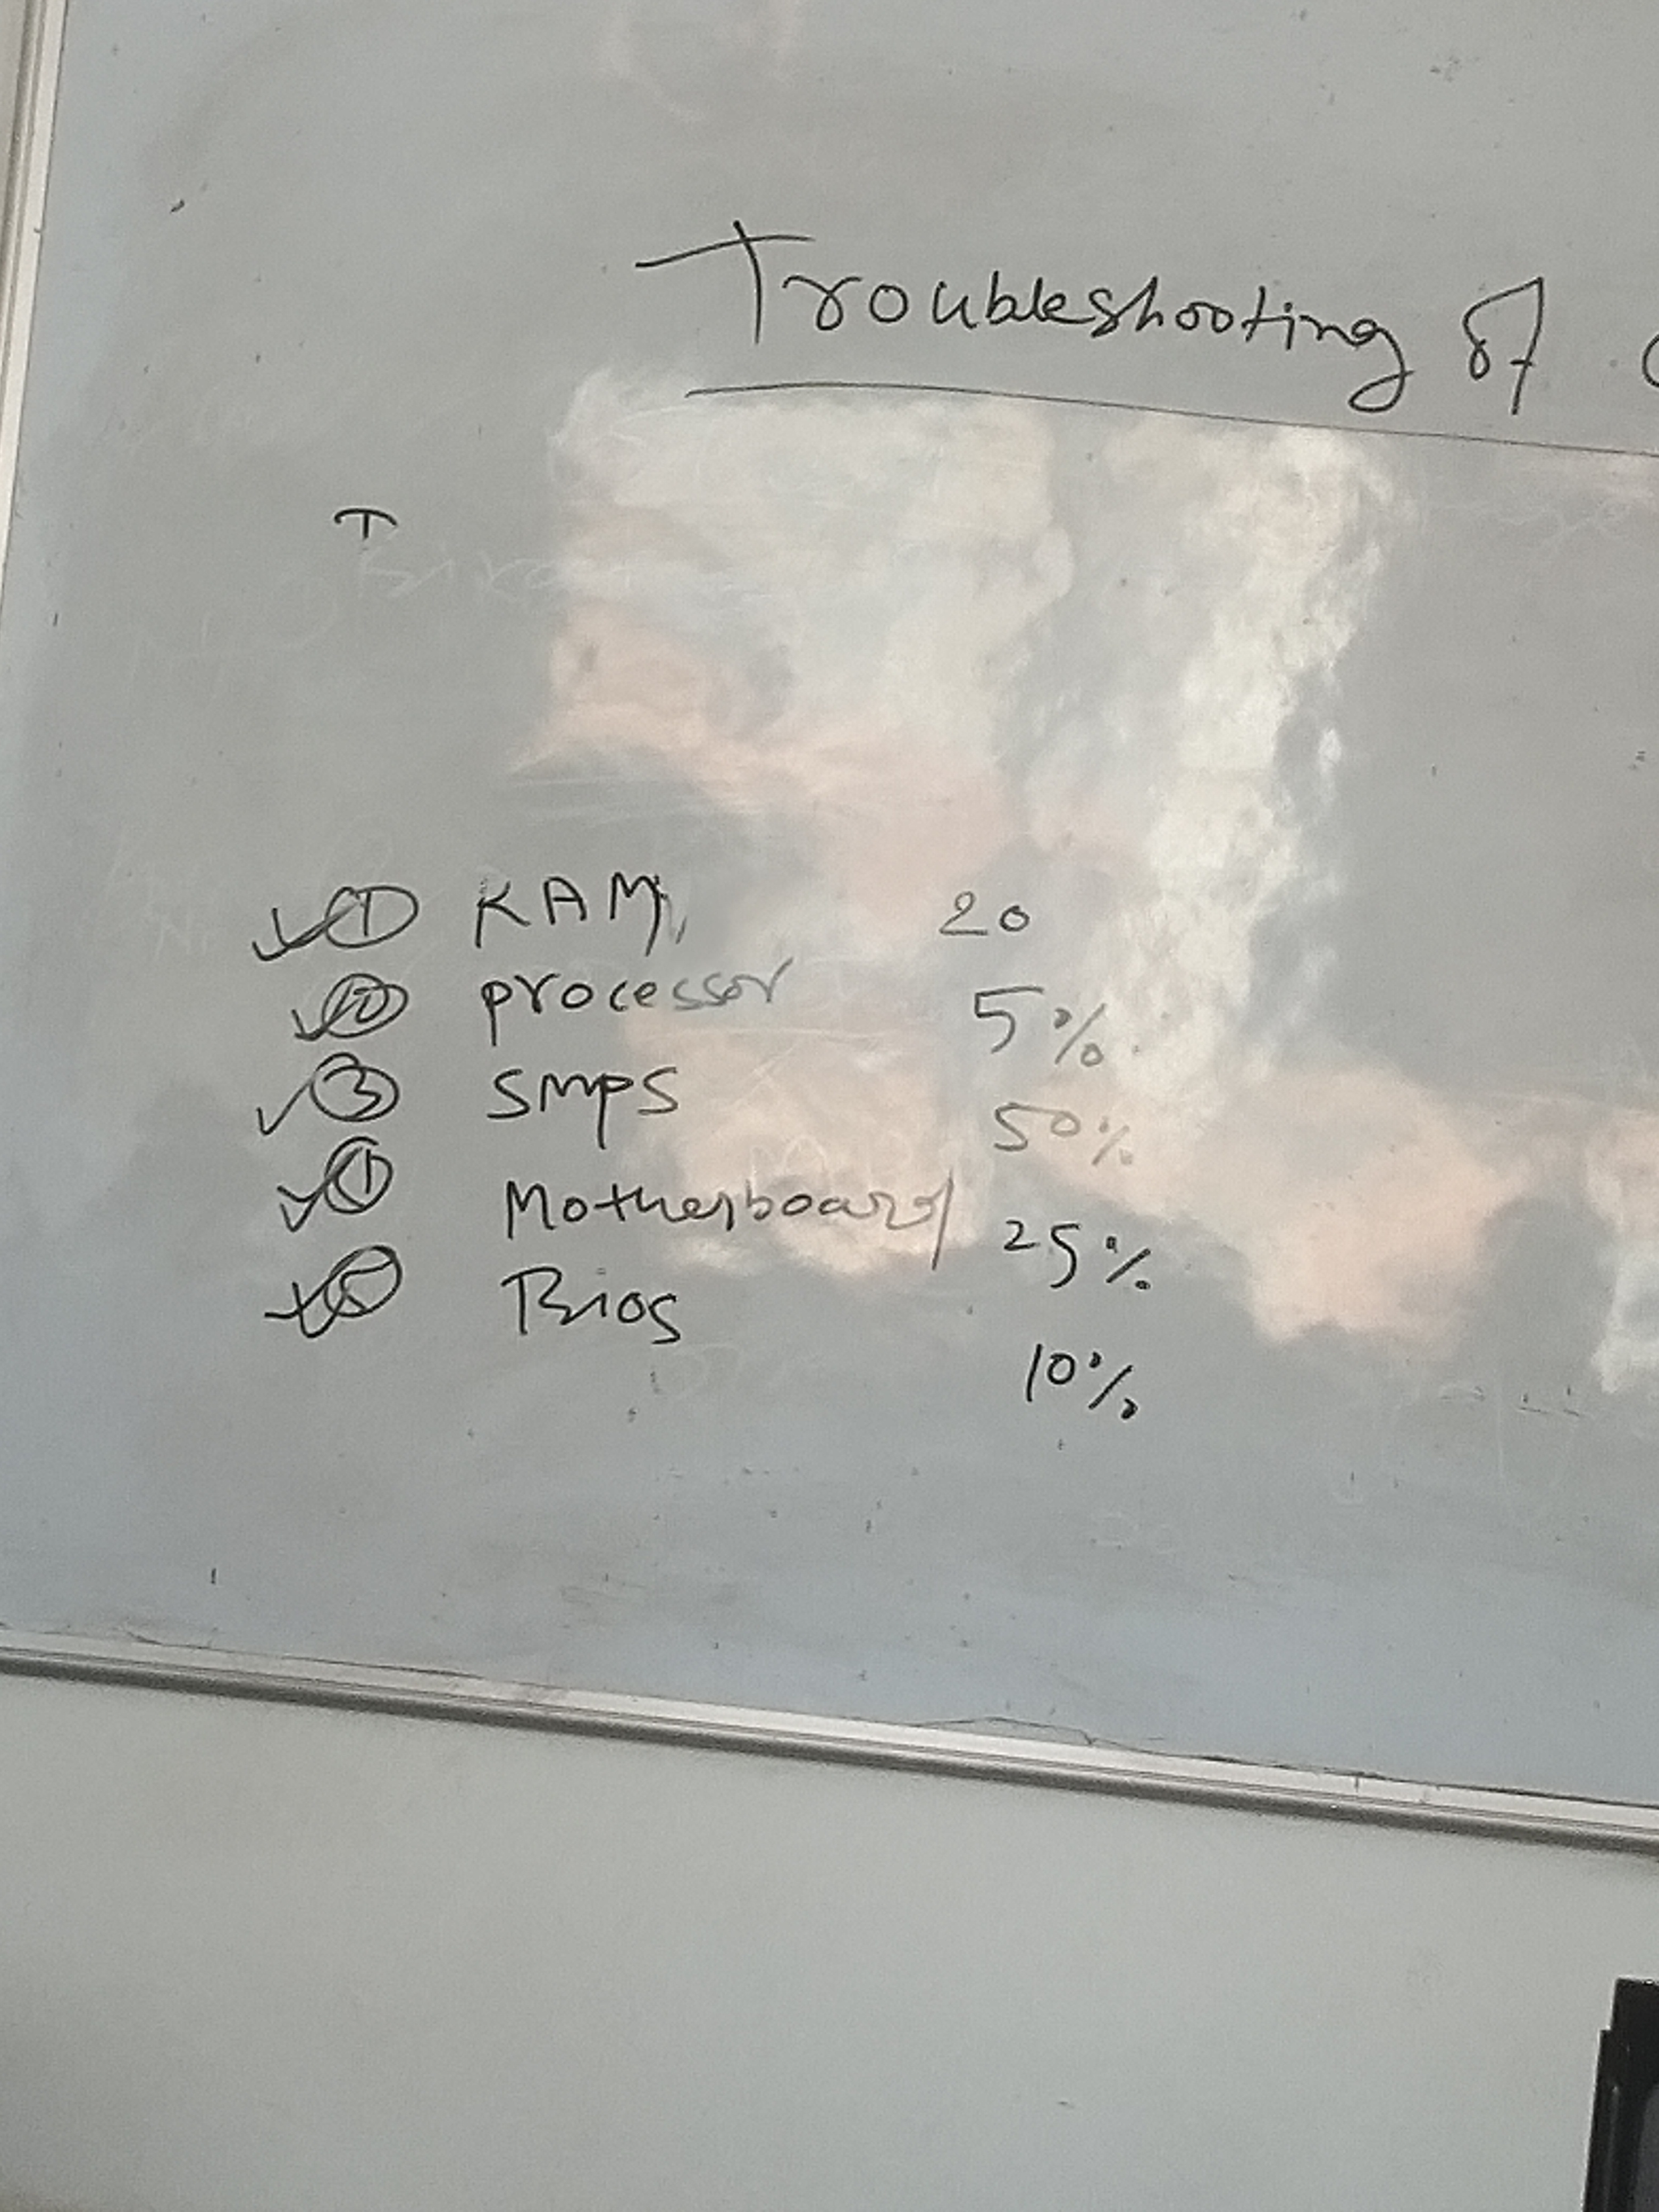 Troubleshooting of
T
① RAM 20
② processor 5%
③ SMPS 50%
④ Motherboard 25%
⑤ Bios 10%